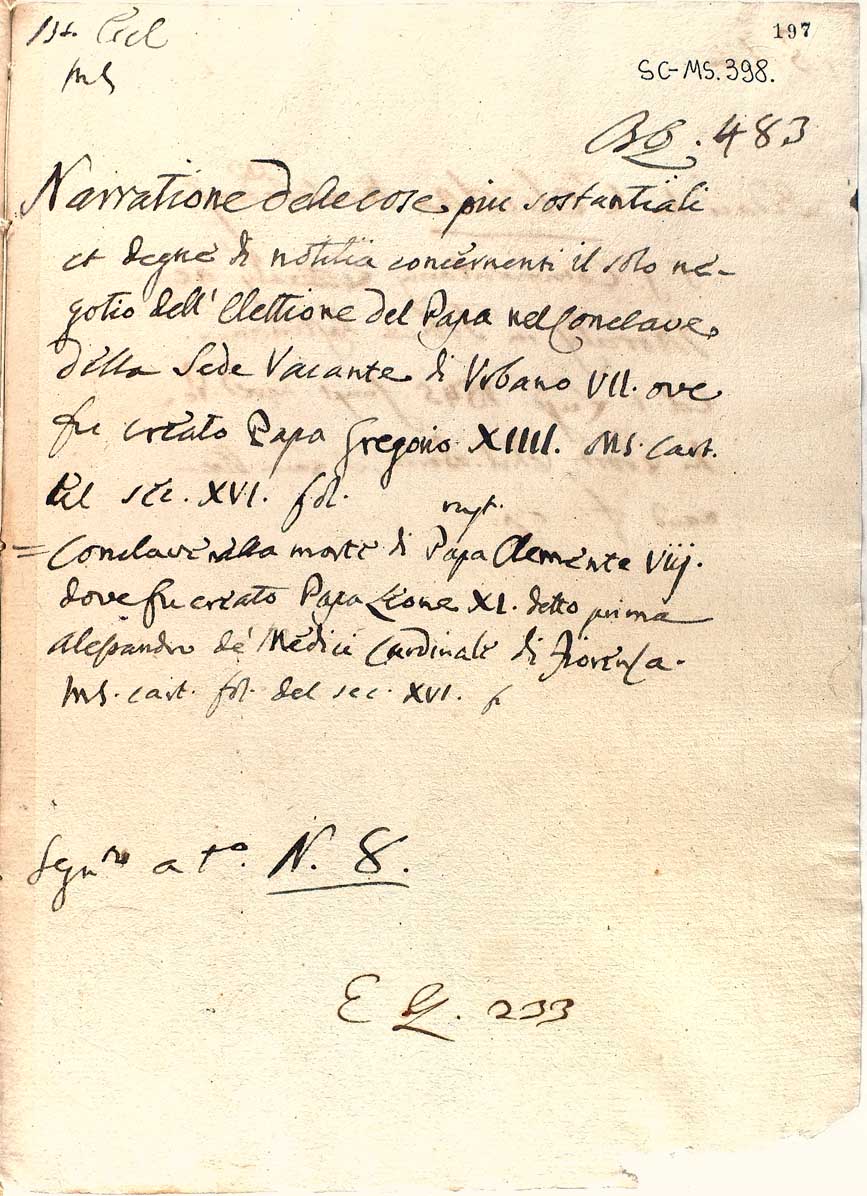 Ist. Eccl
MS
197
SC-MS. 398.
483
Narratione delle cose piu sostantiali
et degne di notitia concernenti il solo ne-
gotio dell' Elettione del Papa nel Conclave
della Sede Vacante di Urbano VII. ove
fu creato Papa Gregorio XIIII. MS. cart.
del sec. XVI. fol.
= Conclave nella morte di Papa Clemente Viij.
dove fu creato Papa Leone XI. detto prima
Alessandro de' Medici Cardinale di Fiorenza.
MS. cart. fol. del sec. XVI.
Segn.to a t.o N. 8.
E 233